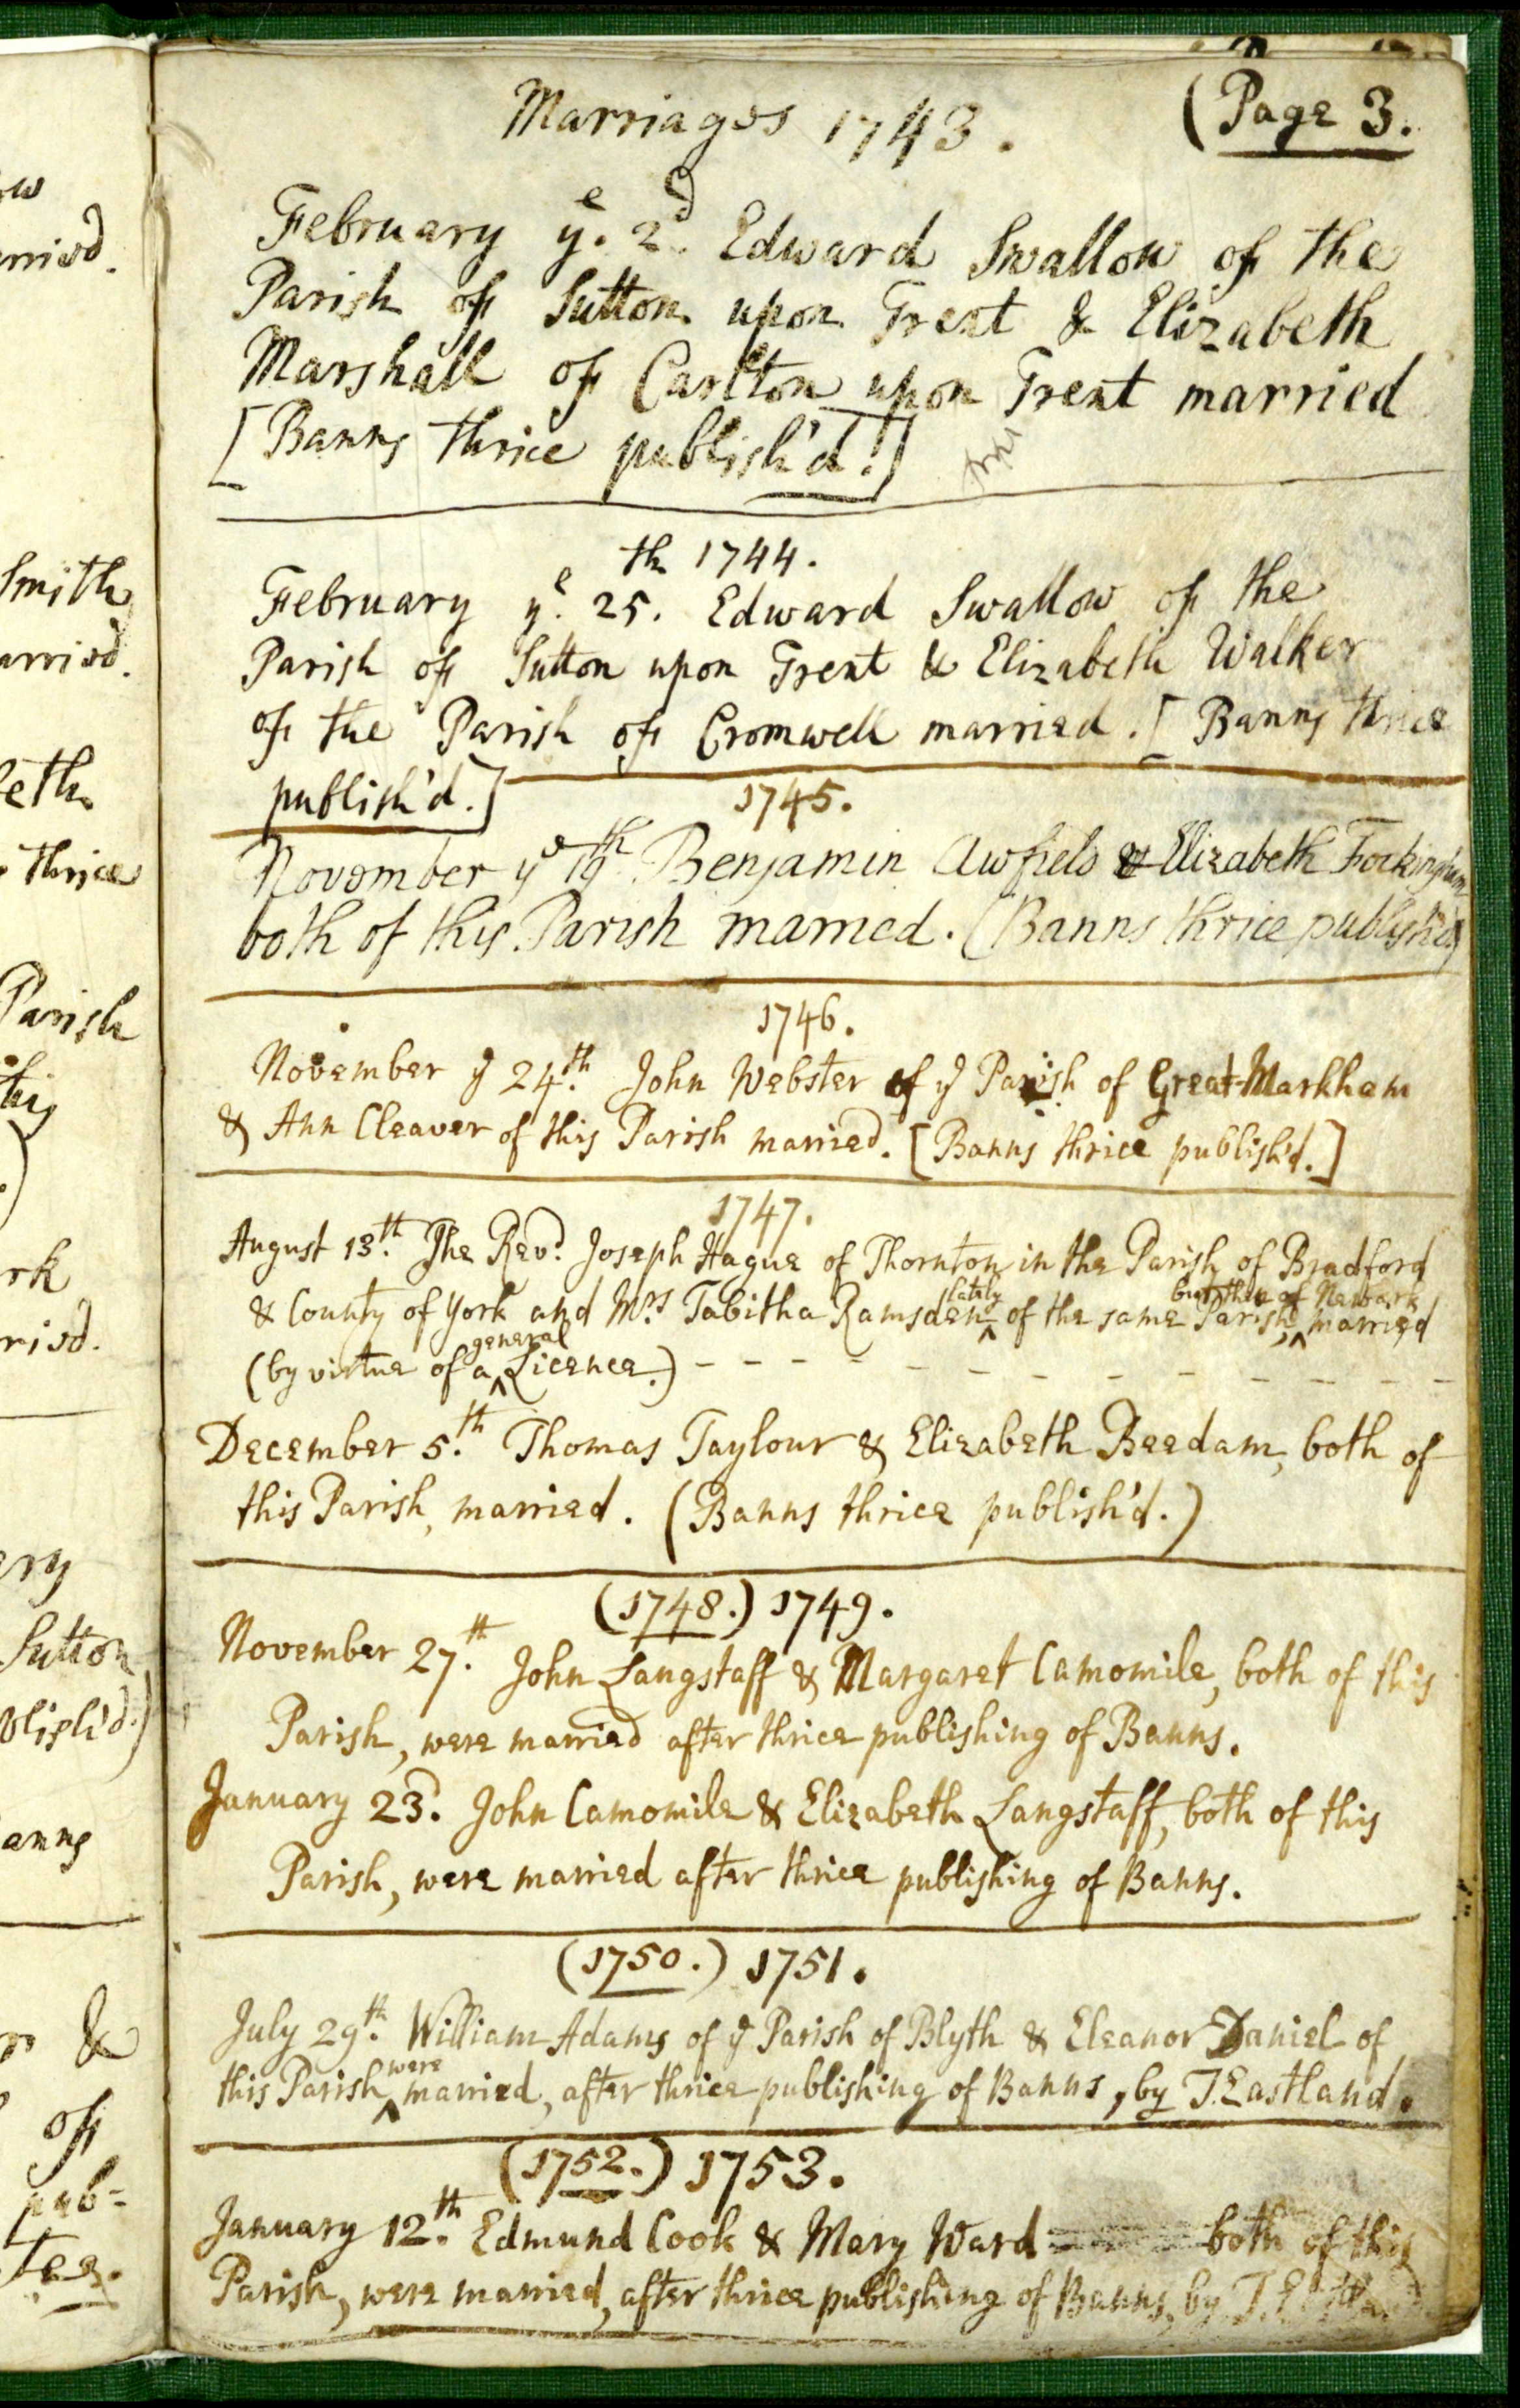 ow
rried.
Smith
arried.
eth
thrice
Parish
this
rk
ried.
ery
Sutton
blish'd.)
anns
&
of
pub=
tee.
Marriages 1743.
(Page 3.
February ye. 2d. Edward Swallow of the
Parish of Sutton upon Trent & Elizabeth
Marshall of Carlton upon Trent married
[Banns thrice publish'd!]
1744.
February ye. 25th. Edward Swallow of the
Parish of Sutton upon Trent & Elizabeth Walker
of the Parish of Cromwell married. [Banns thrice
publish'd.]
1745.
November ye 19th Benjamin Awfield & Elizabeth Fockingham
both of this Parish married. (Banns thrice publish'd)
1746.
November ye 24th. John Webster of ye Parish of Great Markham
& Ann Cleaver of this Parish married. [Banns thrice publish'd.]
1747.
August 13th. The Revd. Joseph Hague of Thornton in the Parish of Bradford
& County of York and Mrs Tabitha Ramsden lately of the same Parish, but then of Newark married
(by virtue of a general Licence.)
December 5.th Thomas Taylour & Elizabeth Beedam, both of
this Parish, married. (Banns thrice publish'd.)
(1748.) 1749.
November 27.th John Langstaff & Margaret Camomile, both of this
Parish, were married after thrice publishing of Banns.
January 23d. John Camomile & Elizabeth Langstaff, both of this
Parish, were married after thrice publishing of Banns.
(1750.) 1751.
July 29th. William Adams of ye Parish of Blyth & Eleanor Daniel of
this Parish were married, after thrice publishing of Banns, by T. Eastland.
(1752.) 1753.
January 12.th Edmund Cook & Mary Ward both of this
Parish, were married, after thrice publishing of Banns, by T. Eastland